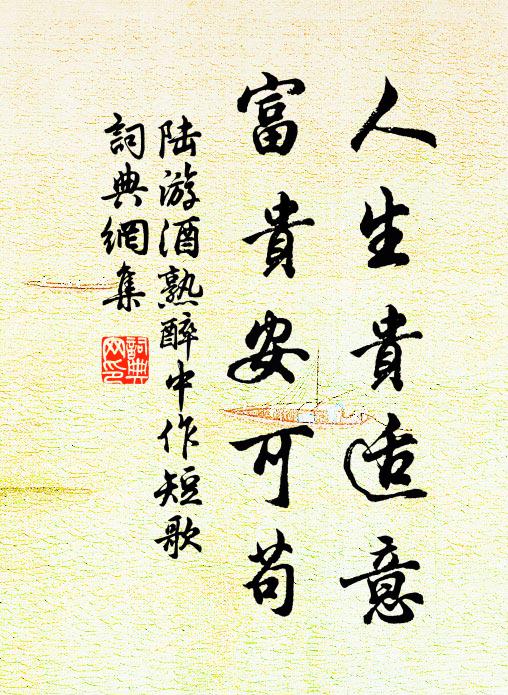 人生貴適意
富貴安可苟
陸游酒熟醉中作短歌
詞典網集
詞典
网印